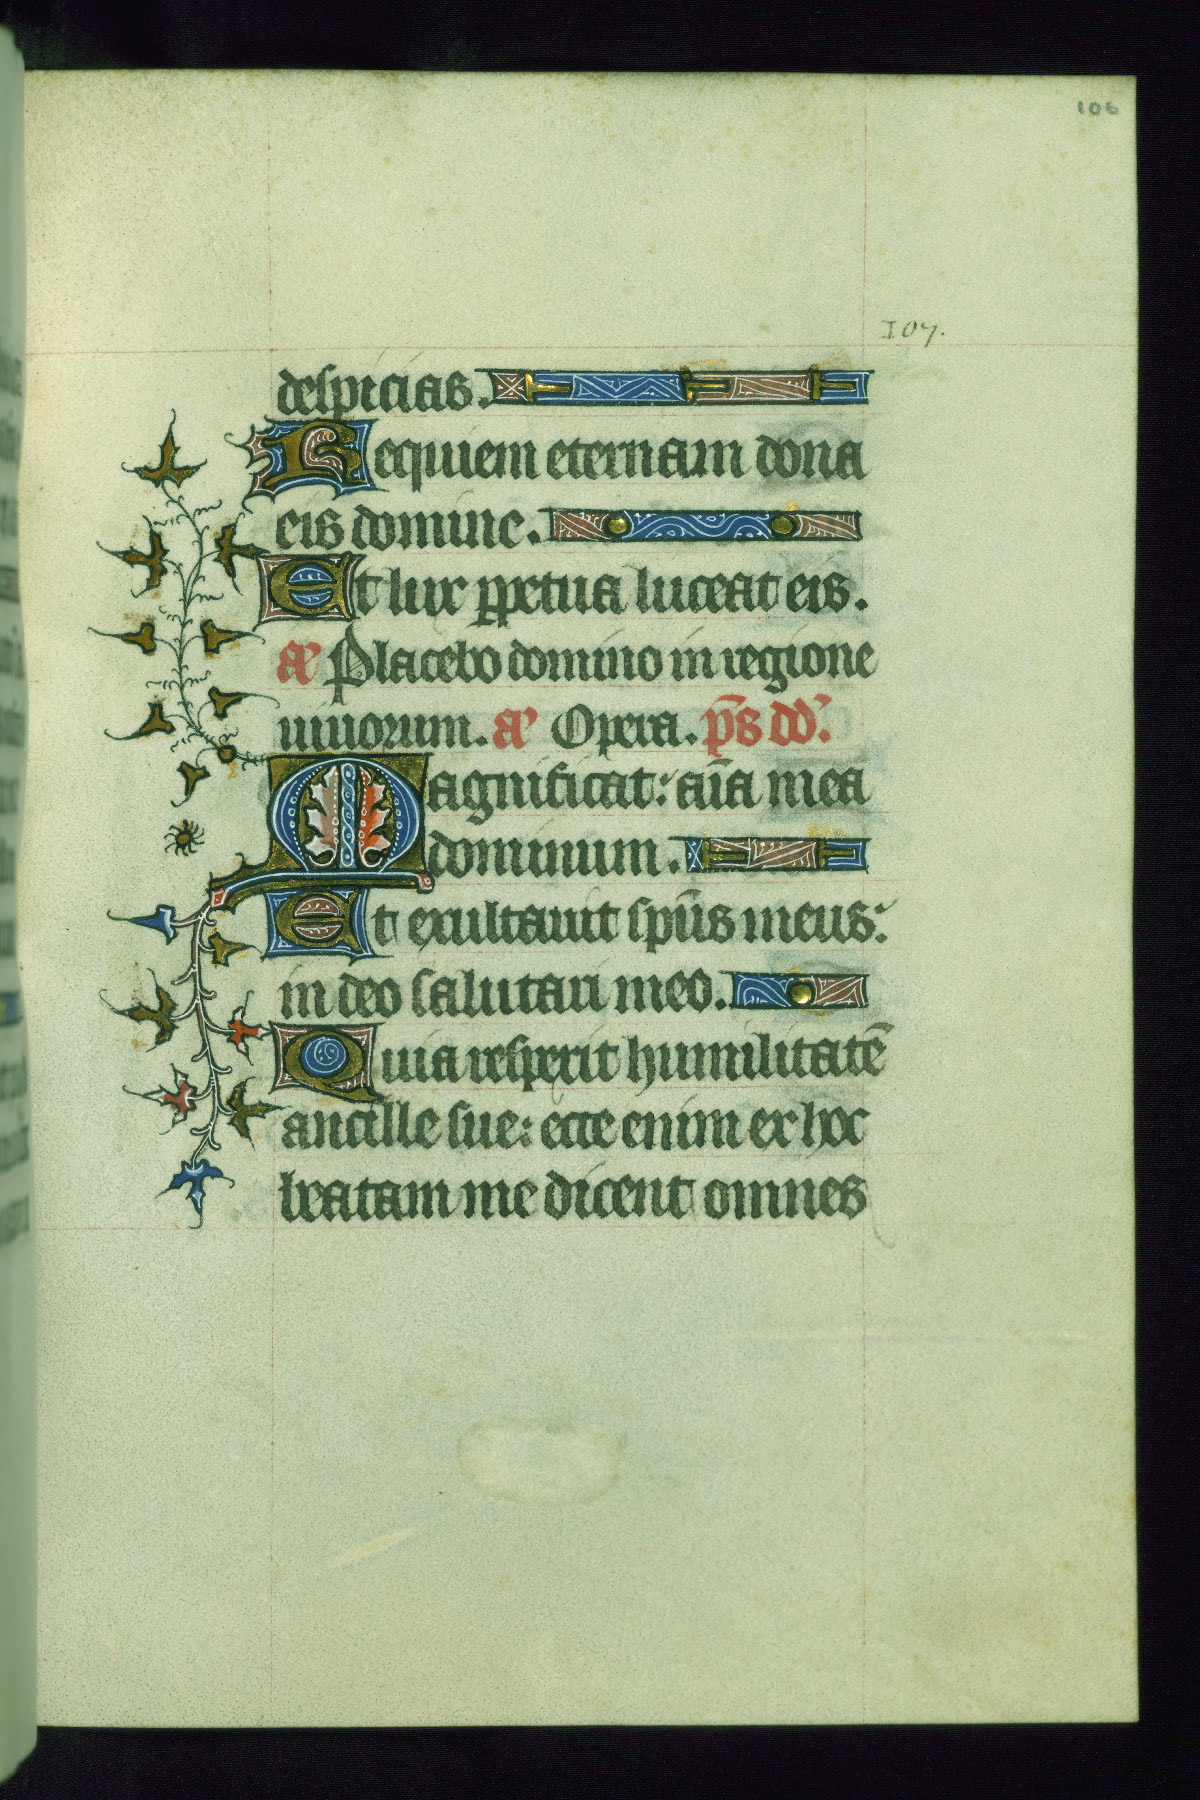 106
107.
despicias.
Requiem eternam dona
eis domine.
Et lux ppetua luceat eis.
añ Placebo domino in regione
uiuorum. añ Opera. p̄s dd̕.
Magnificat: aīa mea
dominum.
Et exultauit sp̄us meus:
in deo salutari meo.
Quia respexit humilitatē
ancille sue: ecce enim ex hoc
beatam me dicent omnes